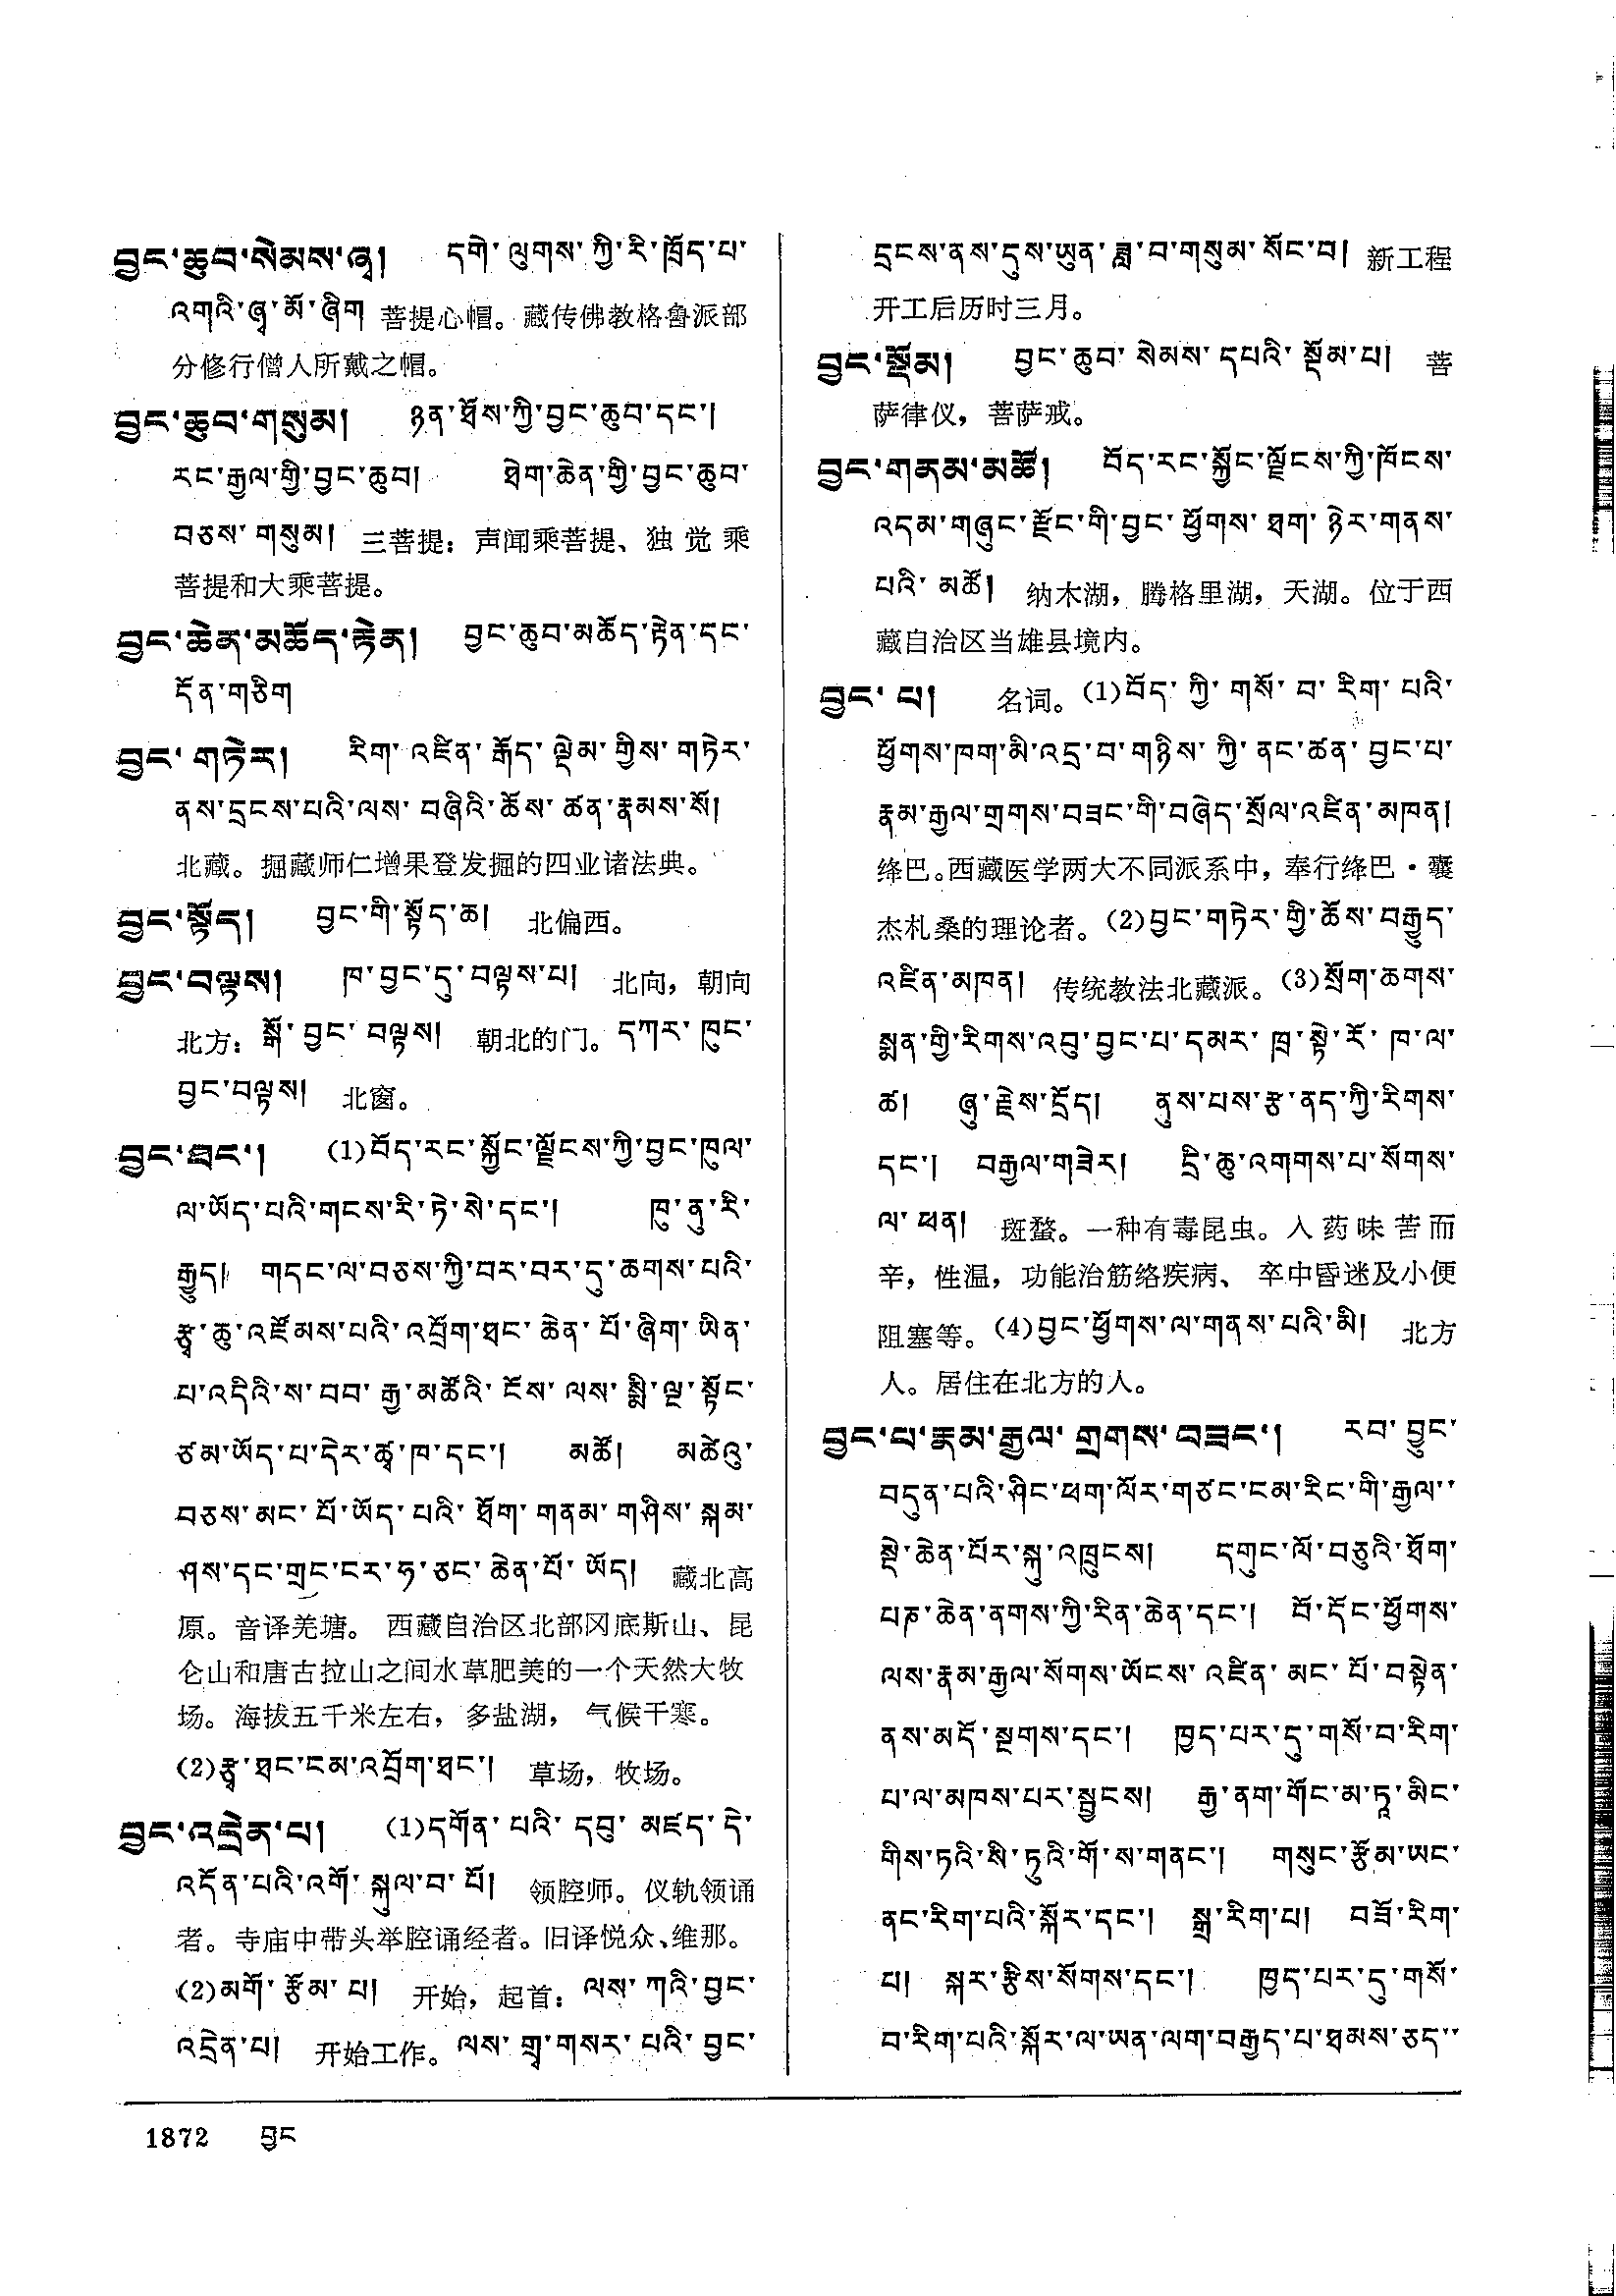 བྱང་ཆུབ་སེམས་ཞྭ། དགེ་ལུགས་ཀྱི་རི་ཁྲོད་པ་
འགའི་ཞྭ་མོ་ཞིག 菩提心帽。藏传佛教格鲁派部
分修行僧人所戴之帽。
བྱང་ཆུབ་གསུམ། ཉན་ཐོས་ཀྱི་བྱང་ཆུབ་དང་།
རང་རྒྱལ་གྱི་བྱང་ཆུབ། ཐེག་ཆེན་གྱི་བྱང་ཆུབ་
བཅས་གསུམ། 三菩提：声闻乘菩提、独觉乘
菩提和大乘菩提。
བྱང་ཆེན་མཆོད་རྟེན། བྱང་ཆུབ་མཆོད་རྟེན་དང་
དོན་གཅིག
བྱང་གཏེར། རིག་འཛིན་རྒོད་ལྡེམ་གྱིས་གཏེར་
ནས་དྲངས་པའི་ལས་བཞིའི་ཆོས་ཚན་རྣམས་སོ།
北藏。掘藏师仁增果登发掘的四业诸法典。
བྱང་སྟོད། བྱང་གི་སྟོད་ཆ། 北偏西。
བྱང་བལྟས། ཁ་བྱང་དུ་བལྟས་པ། 北向，朝向
北方：སྒོ་བྱང་བལྟས། 朝北的门。དཀར་ཁུང་
བྱང་བལྟས། 北窗。
བྱང་ཐང་། (1)བོད་རང་སྐྱོང་ལྗོངས་ཀྱི་བྱང་ཁུལ་
ལ་ཡོད་པའི་གངས་རི་ཏེ་སེ་དང་། ཁུ་ནུ་རི་
རྒྱུད། གདང་ལ་བཅས་ཀྱི་བར་བར་དུ་ཆགས་པའི་
རྩྭ་ཆུ་འཛོམས་པའི་འབྲོག་ཐང་ཆེན་པོ་ཞིག་ཡིན་
པ་འདིའི་ས་བབ་རྒྱ་མཚོའི་ངོས་ལས་སྨི་ལྔ་སྟོང་
ཙམ་ཡོད་པ་དེར་ཚྭ་ཁ་དང་། མཚོ། མཚེའུ་
བཅས་མང་པོ་ཡོད་པའི་ཐོག་གནམ་གཤིས་སྐམ་
ཤས་དང་གྲང་ངར་ཧ་ཅང་ཆེན་པོ་ཡོད། 藏北高
原。音译羌塘。西藏自治区北部冈底斯山、昆
仑山和唐古拉山之间水草肥美的一个天然大牧
场。海拔五千米左右，多盐湖，气候干寒。
(2)རྩྭ་ཐང་ངམ་འབྲོག་ཐང་། 草场，牧场。
བྱང་འདྲེན་པ། (1)དགོན་པའི་དབུ་མཛད་དེ་
འདོན་པའི་འགོ་སྐུལ་བ་པོ། 领腔师。仪轨领诵
者。寺庙中带头举腔诵经者。旧译悦众、维那。
(2)མགོ་རྩོམ་པ། 开始，起首：ལས་ཀའི་བྱང་
འདྲེན་པ། 开始工作。ལས་གྲྭ་གསར་པའི་བྱང་
དྲངས་ནས་དུས་ཡུན་ཟླ་བ་གསུམ་སོང་བ། 新工程
开工后历时三月。
བྱང་སྡོམ། བྱང་ཆུབ་སེམས་དཔའི་སྡོམ་པ། 菩
萨律仪，菩萨戒。
བྱང་གནམ་མཚོ། བོད་རང་སྐྱོང་ལྗོངས་ཀྱི་ཁོངས་
འདམ་གཞུང་རྫོང་གི་བྱང་ཕྱོགས་ཐག་ཉེར་གནས་
པའི་མཚོ། 纳木湖，腾格里湖，天湖。位于西
藏自治区当雄县境内。
བྱང་པ། 名词。(1)བོད་ཀྱི་གསོ་བ་རིག་པའི་
ཕྱོགས་ཁག་མི་འདྲ་བ་གཉིས་ཀྱི་ནང་ཚན་བྱང་པ་
རྣམ་རྒྱལ་གྲགས་བཟང་གི་བཞེད་སྲོལ་འཛིན་མཁན།
绛巴。西藏医学两大不同派系中，奉行绛巴·囊
杰札桑的理论者。(2)བྱང་གཏེར་གྱི་ཆོས་བརྒྱུད་
འཛིན་མཁན། 传统教法北藏派。(3)སྲོག་ཆགས་
སྨན་གྱི་རིགས་འབུ་བྱང་པ་དམར་ཁྲ་སྟེ་རོ་ཁ་ལ་
ཚ། ཞུ་རྗེས་དྲོད། ནུས་པས་རྩ་ནད་ཀྱི་རིགས་
དང་། བརྒྱལ་གཟེར། དྲི་ཆུ་འགགས་པ་སོགས་
ལ་ཕན། 斑蝥。一种有毒昆虫。入药味苦而
辛，性温，功能治筋络疾病、卒中昏迷及小便
阻塞等。(4)བྱང་ཕྱོགས་ལ་གནས་པའི་མི། 北方
人。居住在北方的人。
བྱང་པ་རྣམ་རྒྱལ་གྲགས་བཟང་། རབ་བྱུང་
བདུན་པའི་ཤིང་ཕག་ལོར་གཙང་ངམ་རིང་གི་རྒྱལ་་
སྡེ་ཆེན་པོར་སྐུ་འཁྲུངས། དགུང་ལོ་བཅུའི་ཐོག་
པཎ་ཆེན་ནགས་ཀྱི་རིན་ཆེན་དང་། བོ་དོང་ཕྱོགས་
ལས་རྣམ་རྒྱལ་སོགས་ཡོངས་འཛིན་མང་པོ་བསྟེན་
ནས་མདོ་སྔགས་དང་། ཁྱད་པར་དུ་གསོ་བ་རིག་
པ་ལ་མཁས་པར་སྦྱངས། རྒྱ་ནག་གོང་མ་ཏཱ་མིང་
གིས་ཏའི་སི་ཏུའི་གོ་ས་གནང་། གསུང་རྩོམ་ཡང་
ནང་རིག་པའི་སྐོར་དང་། སྒྲ་རིག་པ། བཟོ་རིག་
པ། སྐར་རྩིས་སོགས་དང་། ཁྱད་པར་དུ་གསོ་
བ་རིག་པའི་སྐོར་ལ་ཡན་ལག་བརྒྱད་པ་ཐམས་ཅད་་
1872 བྱང